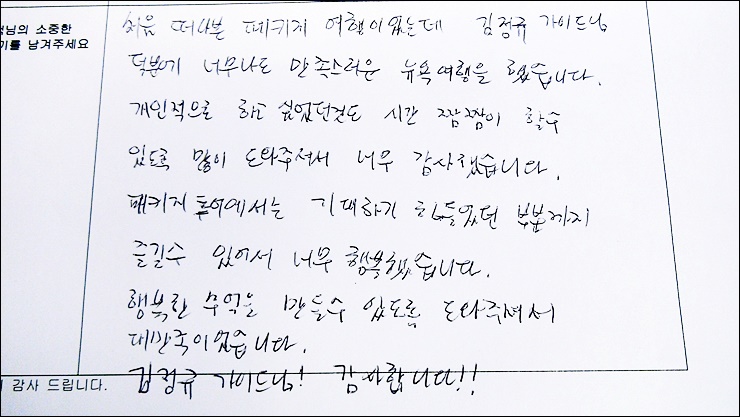 처음 떠나본 패키지 여행이었는데 김정규 가이드님
덕분에 너무나도 만족스러운 뉴욕여행을 했습니다.
개인적으로 하고 싶었던것도 시간 짬짬이 할수
있도록 많이 도와주셔서 너무 감사했습니다.
패키지 투어에서는 기대하기 힘들었던 부분까지
즐길수 있어서 너무 행복했습니다.
행복한 추억을 만들수 있도록 도와주셔서
대만족이었습니다.
김정규 가이드님! 감사합니다!!
객님의 소중한
기를 남겨주세요
감사 드립니다.